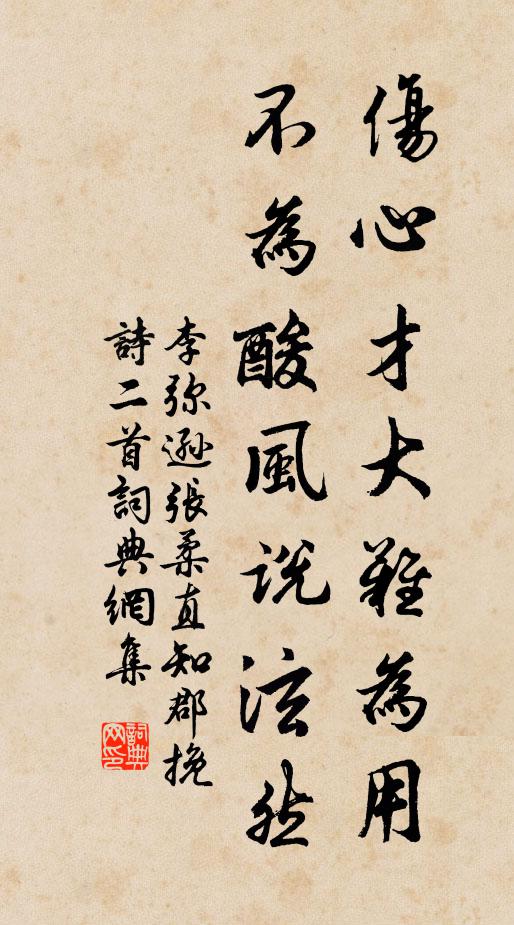 傷心才大難為用
不為酸風說泫然
李弥遜張柔直知郡挽
詩二首詞典網集
詞典网印